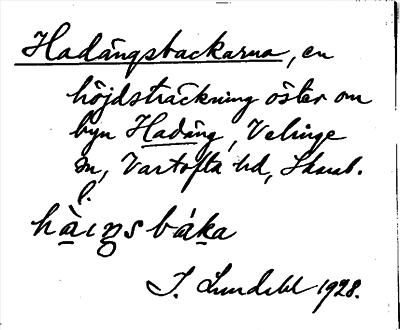 Hadängsbackarna, en
höjdsträckning öster om
byn Hadäng, Velinge
sn, Vartofta hd, Skarab.
l.
hàıŋsbáka
J. Lundahl 1928.